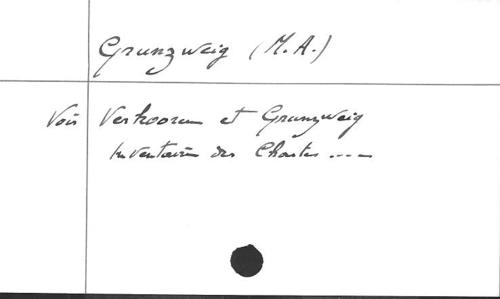 Grunzweig (M.A.)
Voir Verkooren et Grunzweig
Inventaire des Chartes ....